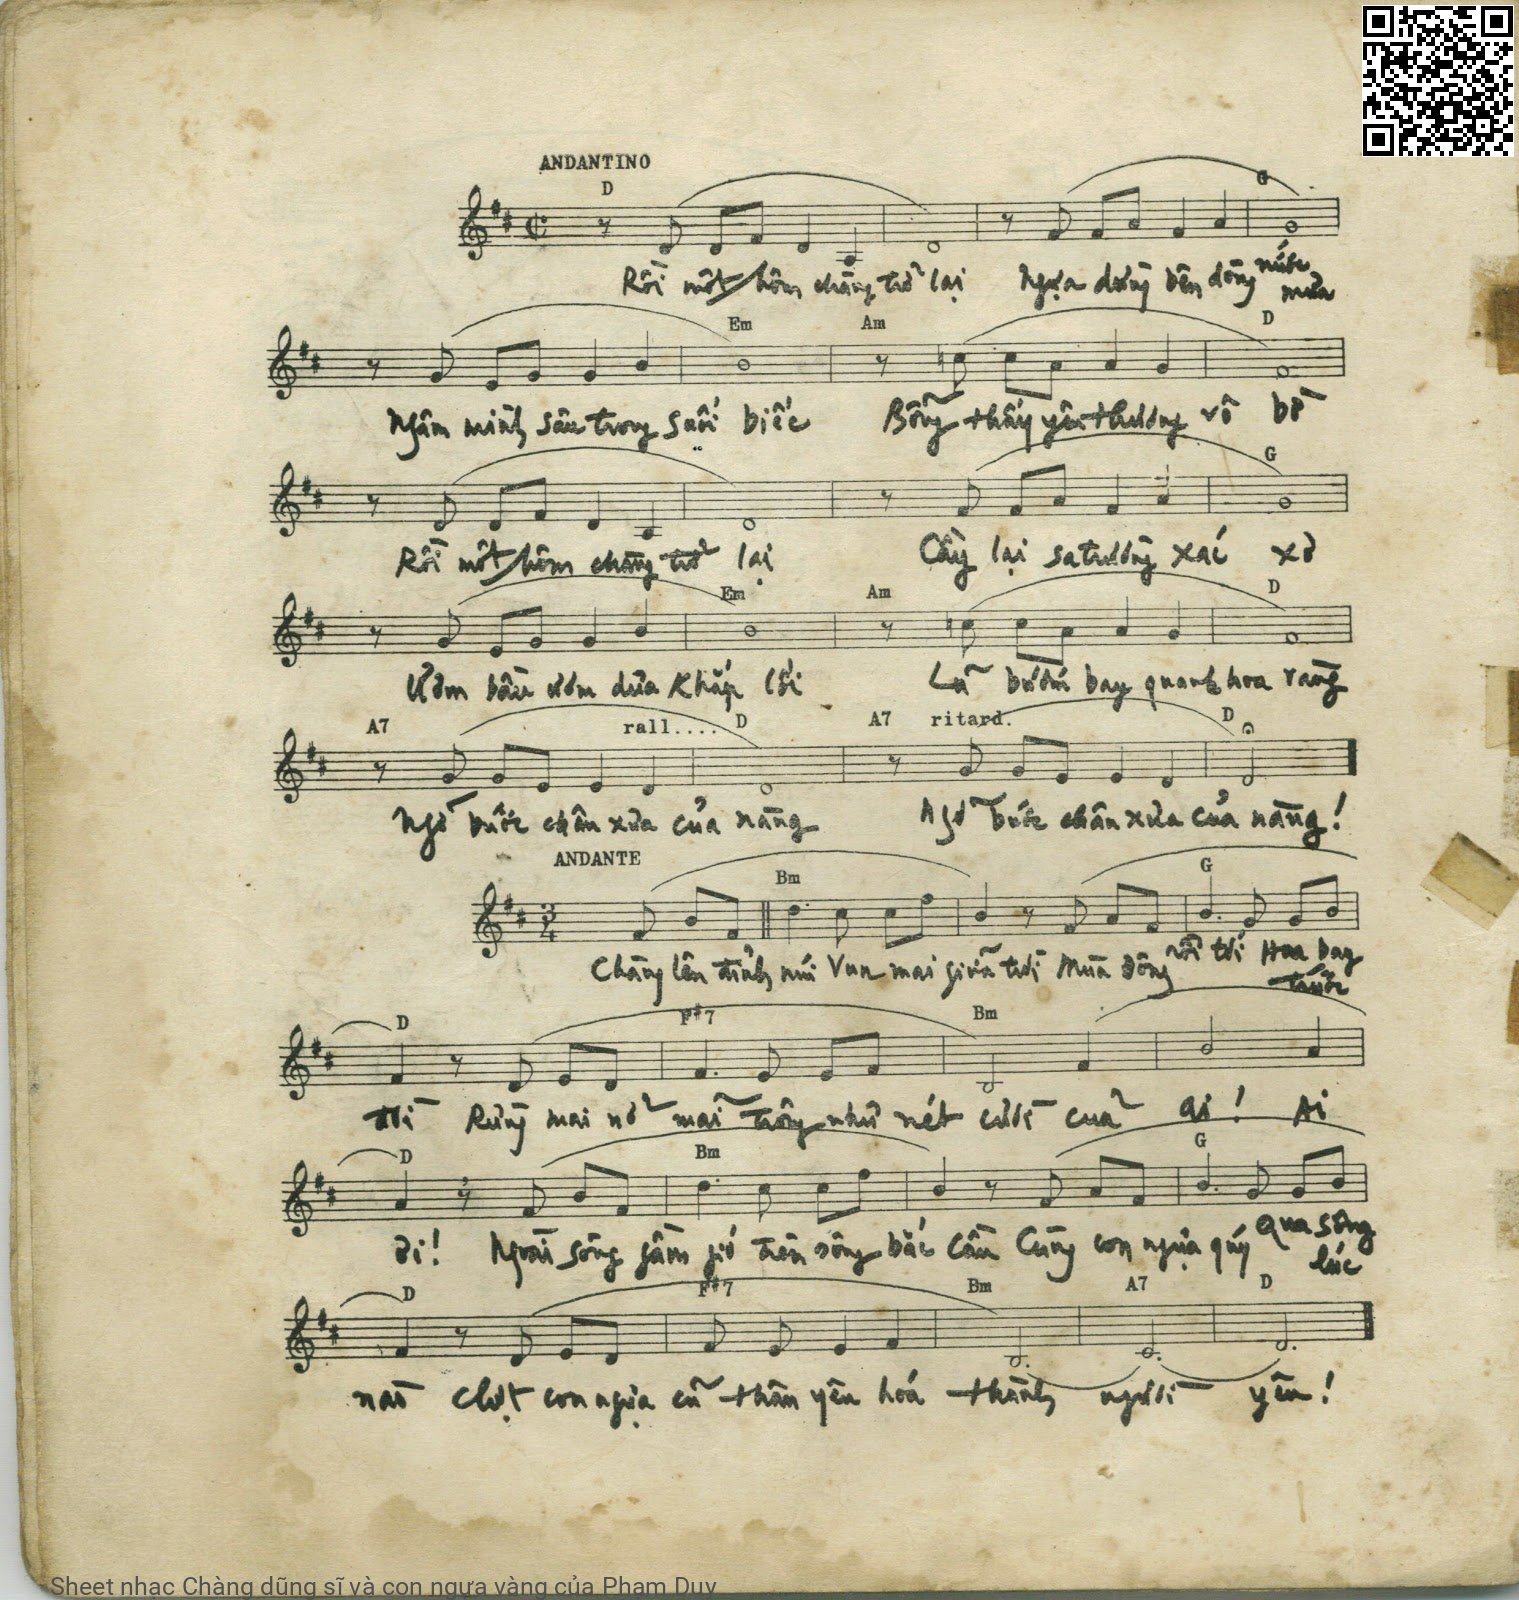 ANDANTINO
D G
Rồi một hôm chàng trở lại Ngựa dừng bên dòng nước mùa
Em Am D
Ngâm mình sâu trong suối biếc Bỗng thấy yêu thương vô bờ
G
Rồi một hôm chàng trở lại Cây lại sa trường xác xơ
Em Am D
Ươm bầu ươm dưa khắp lối Lũ bướm bay quanh hoa vàng
A7 rall.... D A7 ritard. D
Ngỡ bước chân xưa của nàng Ngỡ bước chân xưa của nàng!
ANDANTE
Bm G
Chàng lên đỉnh núi Vun mai giữa trời Mùa Đông rồi tới Hoa bay trước
D F#7 Bm
đồi Rừng mai nở mãi Trông như nét cười của ai! Ai
D Bm G
ơi! Ngoài sông gầm gió Trên sông bắc cầu Cùng con ngựa quý Qua sông lúc
D F#7 Bm A7 D
nào Chợt con ngựa cũ thân yêu hoá thành người yêu!
Sheet nhạc Chàng dũng sĩ và con ngựa vàng của Phạm Duy